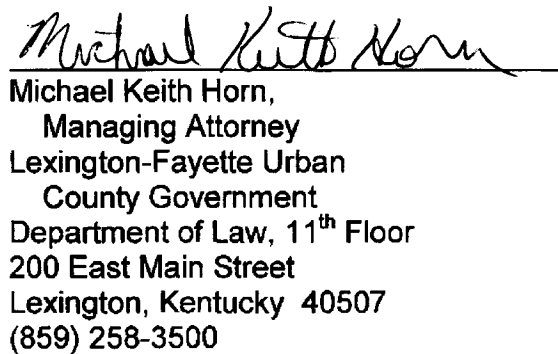 Michael Keith Horn
Michael Keith Horn,
Managing Attorney
Lexington-Fayette Urban
County Government
Department of Law, 11th Floor
200 East Main Street
Lexington, Kentucky 40507
(859) 258-3500